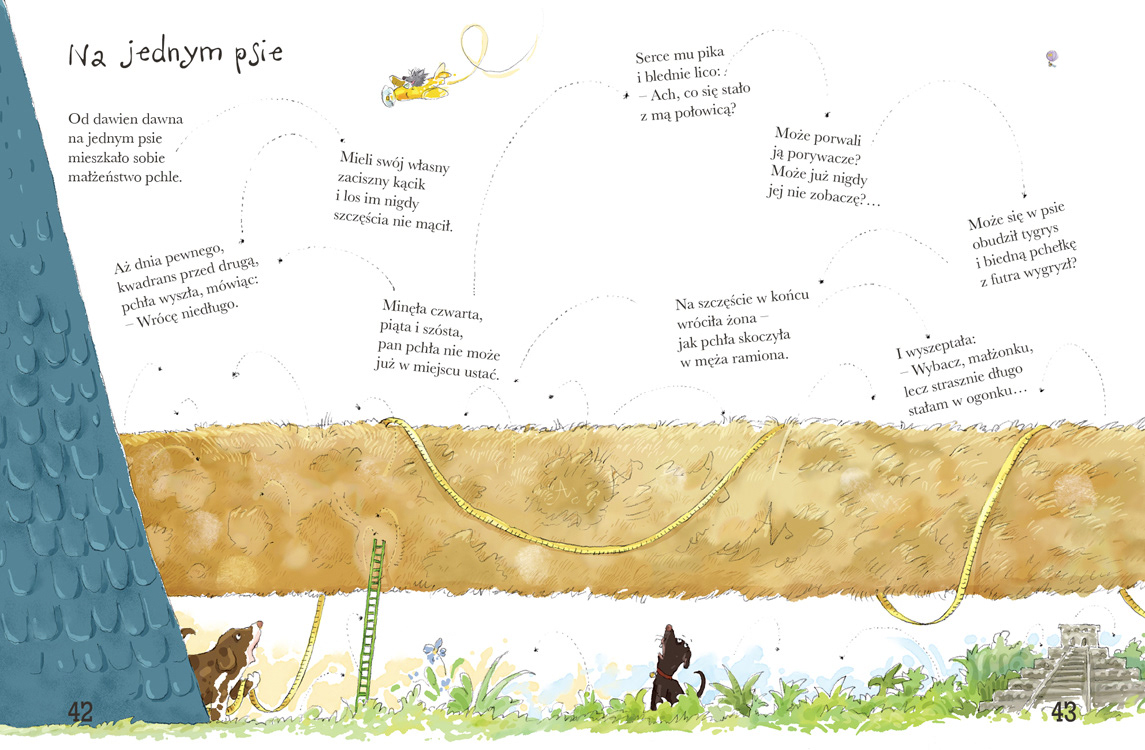 Na jednym psie
Od dawien dawna
na jednym psie
mieszkało sobie
małżeństwo pchle.
Mieli swój własny
zaciszny kącik
i los im nigdy
szczęścia nie mącił.
Aż dnia pewnego,
kwadrans przed drugą,
pchła wyszła, mówiąc:
– Wrócę niedługo.
Minęła czwarta,
piąta i szósta,
pan pchła nie może
już w miejscu ustać.
Serce mu pika
i blednie lico:
– Ach, co się stało
z mą połowicą?
Może porwali
ją porywacze?
Może już nigdy
jej nie zobaczę?…
Może się w psie
obudził tygrys
i biedną pchełkę
z futra wygryzł?
Na szczęście w końcu
wróciła żona –
jak pchła skoczyła
w męża ramiona.
I wyszeptała:
– Wybacz, małżonku,
lecz strasznie długo
stałam w ogonku…
42
43